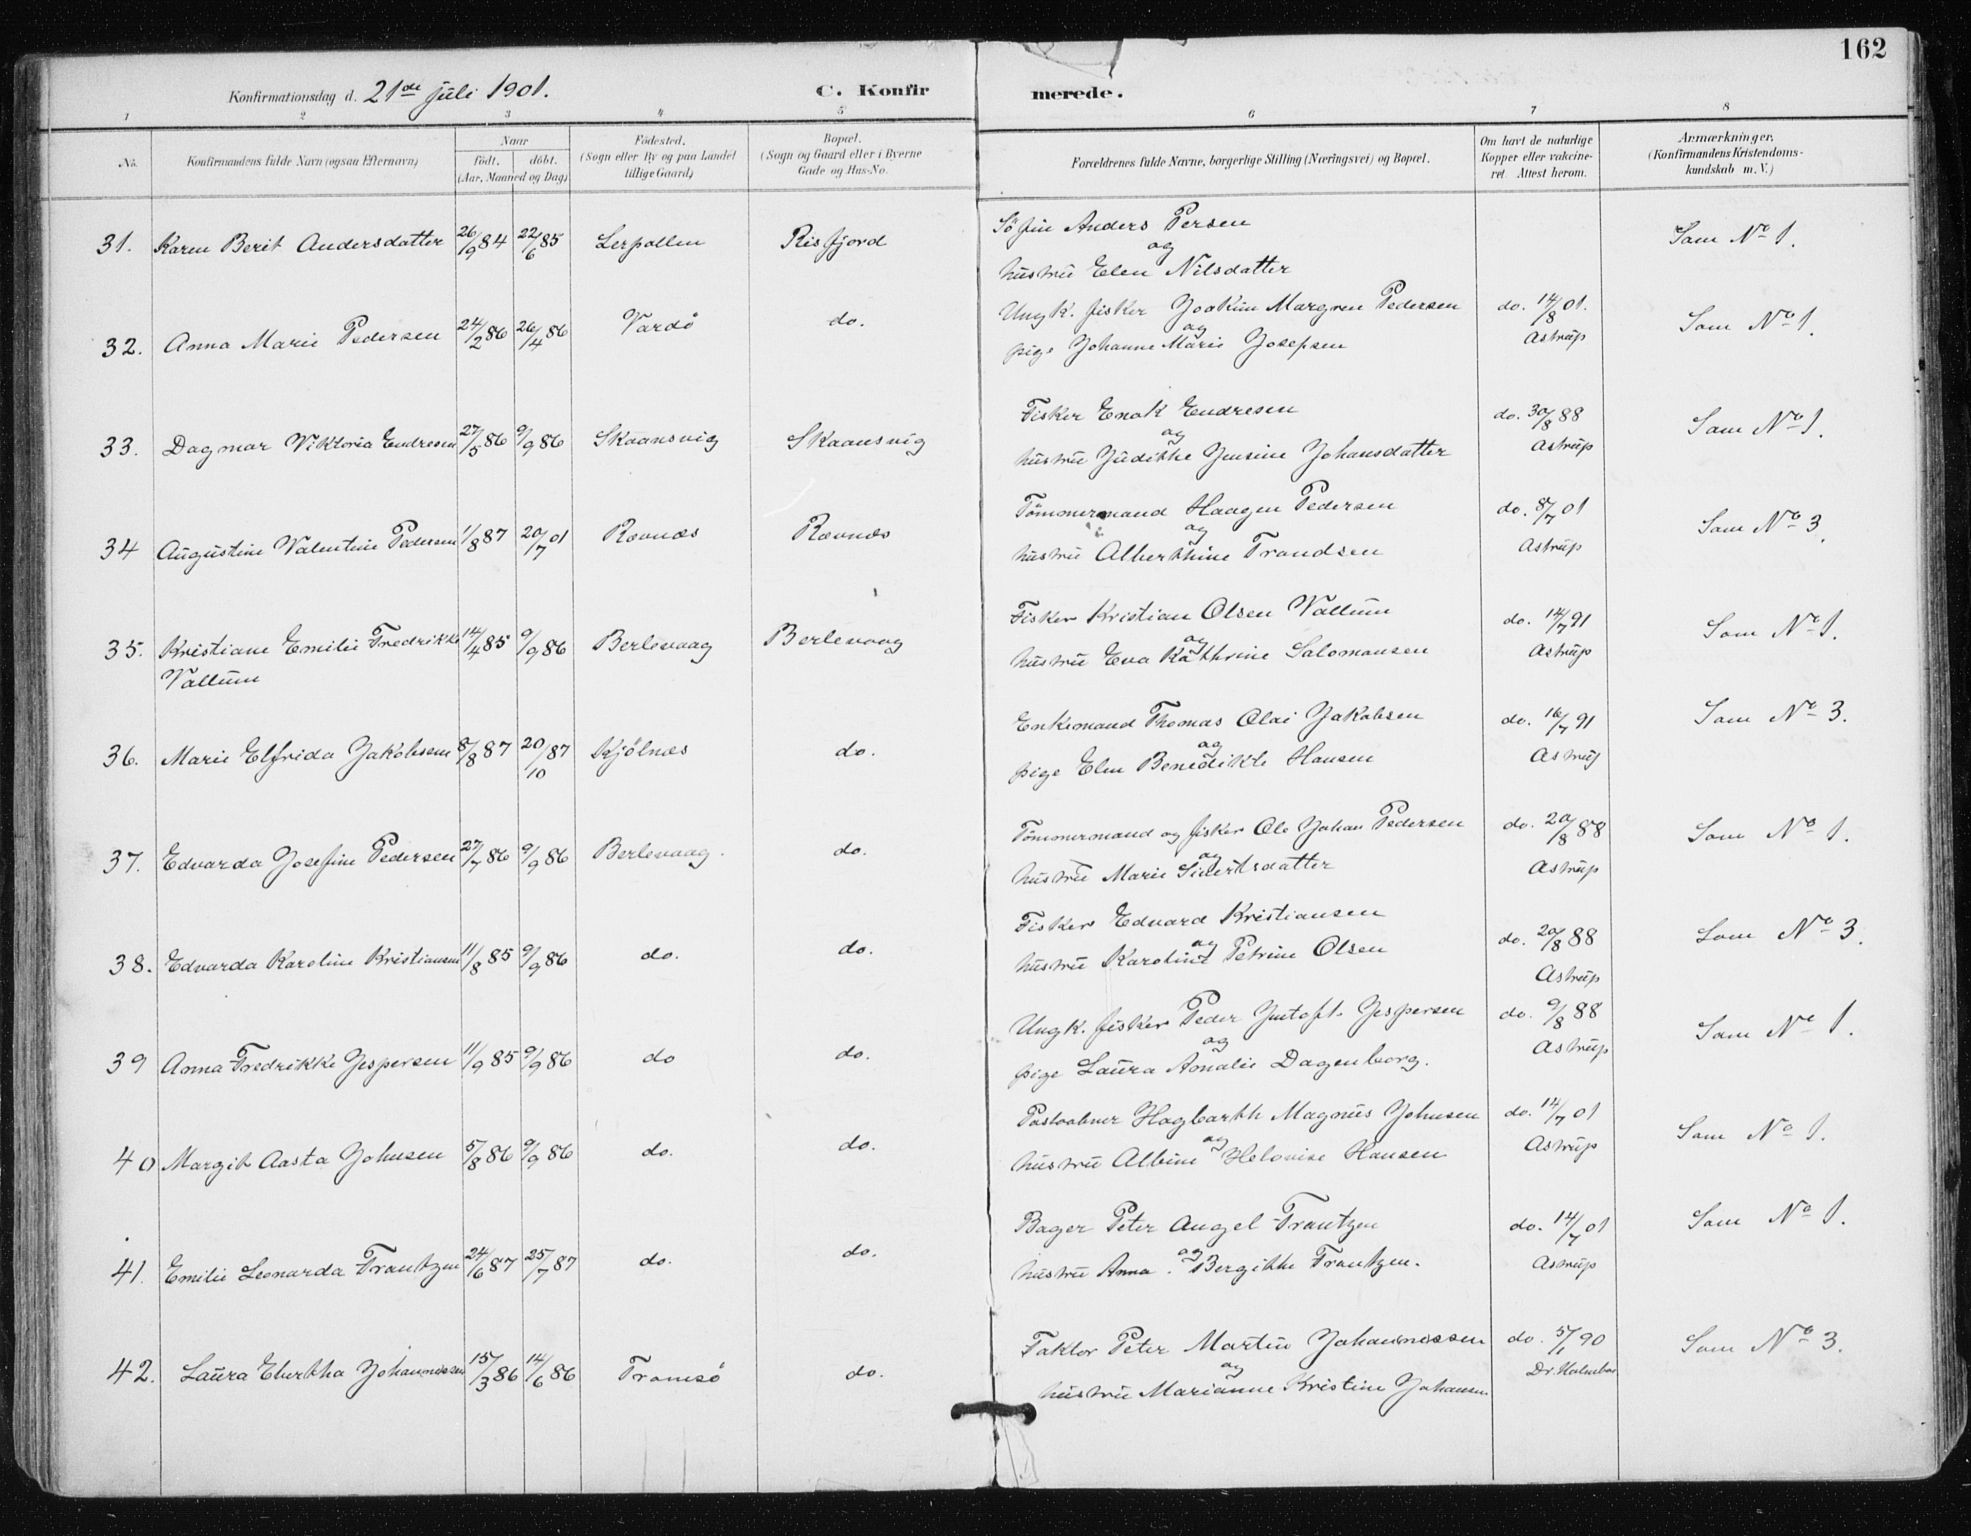 162
Konfirmationsdag d. 21de Juli 1901. C. Konfirmerede.
1 2 3 4 5 6 7 8
No. Konfirmandens fulde Navn (ogsaa Efternavn) Naar födt. döbt. (Aar, Maaned og Dag) Födested. (Sogn eller By og paa Landet tillige Gaard) Bopæl. (Sogn og Gaard eller i Byerne Gade og Hus-No. Forældrenes fulde Navne, borgerlige Stilling (Næringsvei) og Bopæl. Om havt de naturlige Kopper eller vakcineret. Attest herom. Anmærkninger. (Konfirmandens Kristendomskundskab m. V.)
31. Karen Berit Andersdatter 26/9 84 22/6 85 Lerpollen Risfjord Söfin Anders Persen Som No 1.
og
hustru Elen Nilsdatter
32. Anna Marie Pedersen 24/2 86 26/4 86 Vardö do. Ungk. fisker Joakim Margren Pedersen do. 14/8 01. Som No 1.
og
pige Johanne Marie Josefsen Astrup
33. Dagmar Viktoria Endresen 27/5 86 9/9 86 Skaansvig Skaansvig Fisker Enok Endresen do. 30/8 88 Som No 1.
og
hustru Judithe Jensine Johansdatter Astrup
34 Augustine Valentine Pedersen 1/8 87 20/7 01 Rævnæs Rævnæs Tömmermand Haagen Pedersen do. 8/7 01 Som No 3.
og
hustru Alberthine Trandsen Astrup
35. Kristiane Emilie Fredrikke 14/4 85 9/9 86 Berlevaag Berlevaag Fisker Kristian Olsen Vallum do. 14/7 91 Som No 1.
Vallum
og
hustru Eva Kathrine Salomonsen Astrup
36. Marie Elfrida Jakobsen 8/8 87 20/10 87 Kjölnes do. Enkemand Thomas Olai Jakobsen do. 16/7 91 Som No 3.
og
pige Elen Benedikte Hansen Astrup
37. Edvarda Josefine Pedersen 27/7 86 9/9 86 Berlevaag. do. Tömmermand og fisker Ole Johan Pedersen do. 20/8 88 Som No 1.
og
hustru Marie Sivertsdatter Astrup
38. Edvarda Karoline Kristiansen 11/8 85 9/9 86 do. do. Fisker Edvard Kristiansen do. 20/8 88 Som No 3.
og
hustru Karoline Petrine Olsen Astrup
39 Anna Fredrikke Jespersen 11/9 85 9/9 86 do do. Ungk. fisker Peder Jespersen do. 9/8 88 Som No 1.
og
pige Laura Amalie Dagenborg. Astrup
40 Margit Aasta Johnsen 5/8 86 9/9 86 do. do. Postaabner Hagbarth Magnus Johnsen do. 14/7 01 Som No 1.
og
hustru Albine Helovise Hansen Astrup
41. Emilie Leonarda Frantzen 24/6 87 25/7 87 do. do. Bager Peter Angel Frantzen do. 14/7 01 Som No 1.
og
hustru Anna Bergitte Frantzen. Astrup
42. Laura Ebertha Johannessen 15/3 86 14/6 86 Tromsö do. Faktor Peter Martin Johannessen do. 5/1 90 Som No 3.
og
hustru Marianne Kristine Johansen Dr. Holmboe